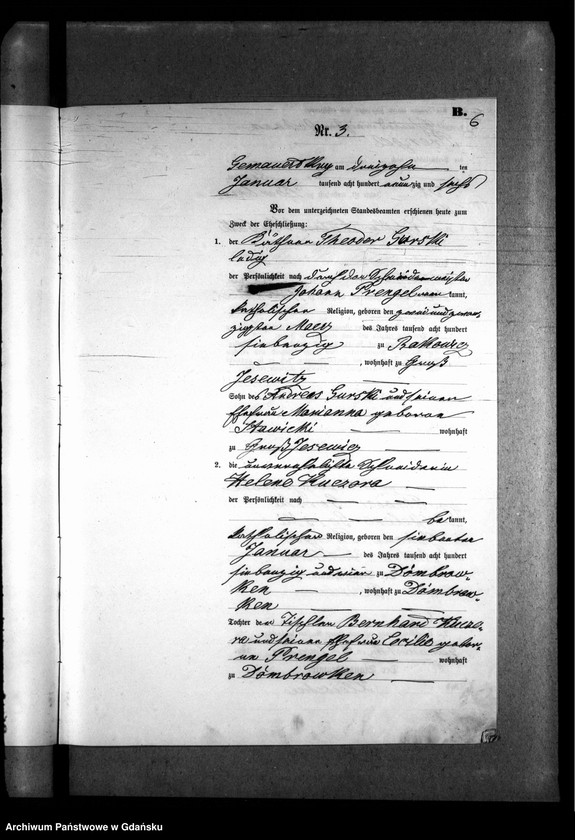 B.
6
Nr. 3.
am dreizehn ten
Januar tausend acht hundert neunzig und sechs
Vor dem unterzeichneten Standesbeamten erschienen heute zum
Zweck der Eheschließung:
1. der Theodor Gurski
ledig
der Persönlichkeit nach durch den Schneidermeister
Johann Prengel kannt,
katholischer Religion, geboren den zwei und zwan-
zigsten Maerz des Jahres tausend acht hundert
siebenzig zu
, wohnhaft zu Groß
Jesewitz
Sohn des Andreas Gurski und seiner
Ehefrau Marianna geborene
Stawicki wohnhaft
zu Groß Jesewitz
2. die unverehelichte Schneiderin
Helene Kuczora
der Persönlichkeit nach
be kannt,
katholischer Religion, geboren den siebenten
Januar des Jahres tausend acht hundert
siebenzig und zu Dombrow-
ken , wohnhaft zu Dombrow-
ken
Tochter des Tischler Bernhard Kuczo-
ra und seiner Ehefrau Cecilie gebor-
en Prengel wohnhaft
zu Dombrowken
Archiwum Państwowe w Gdańsku